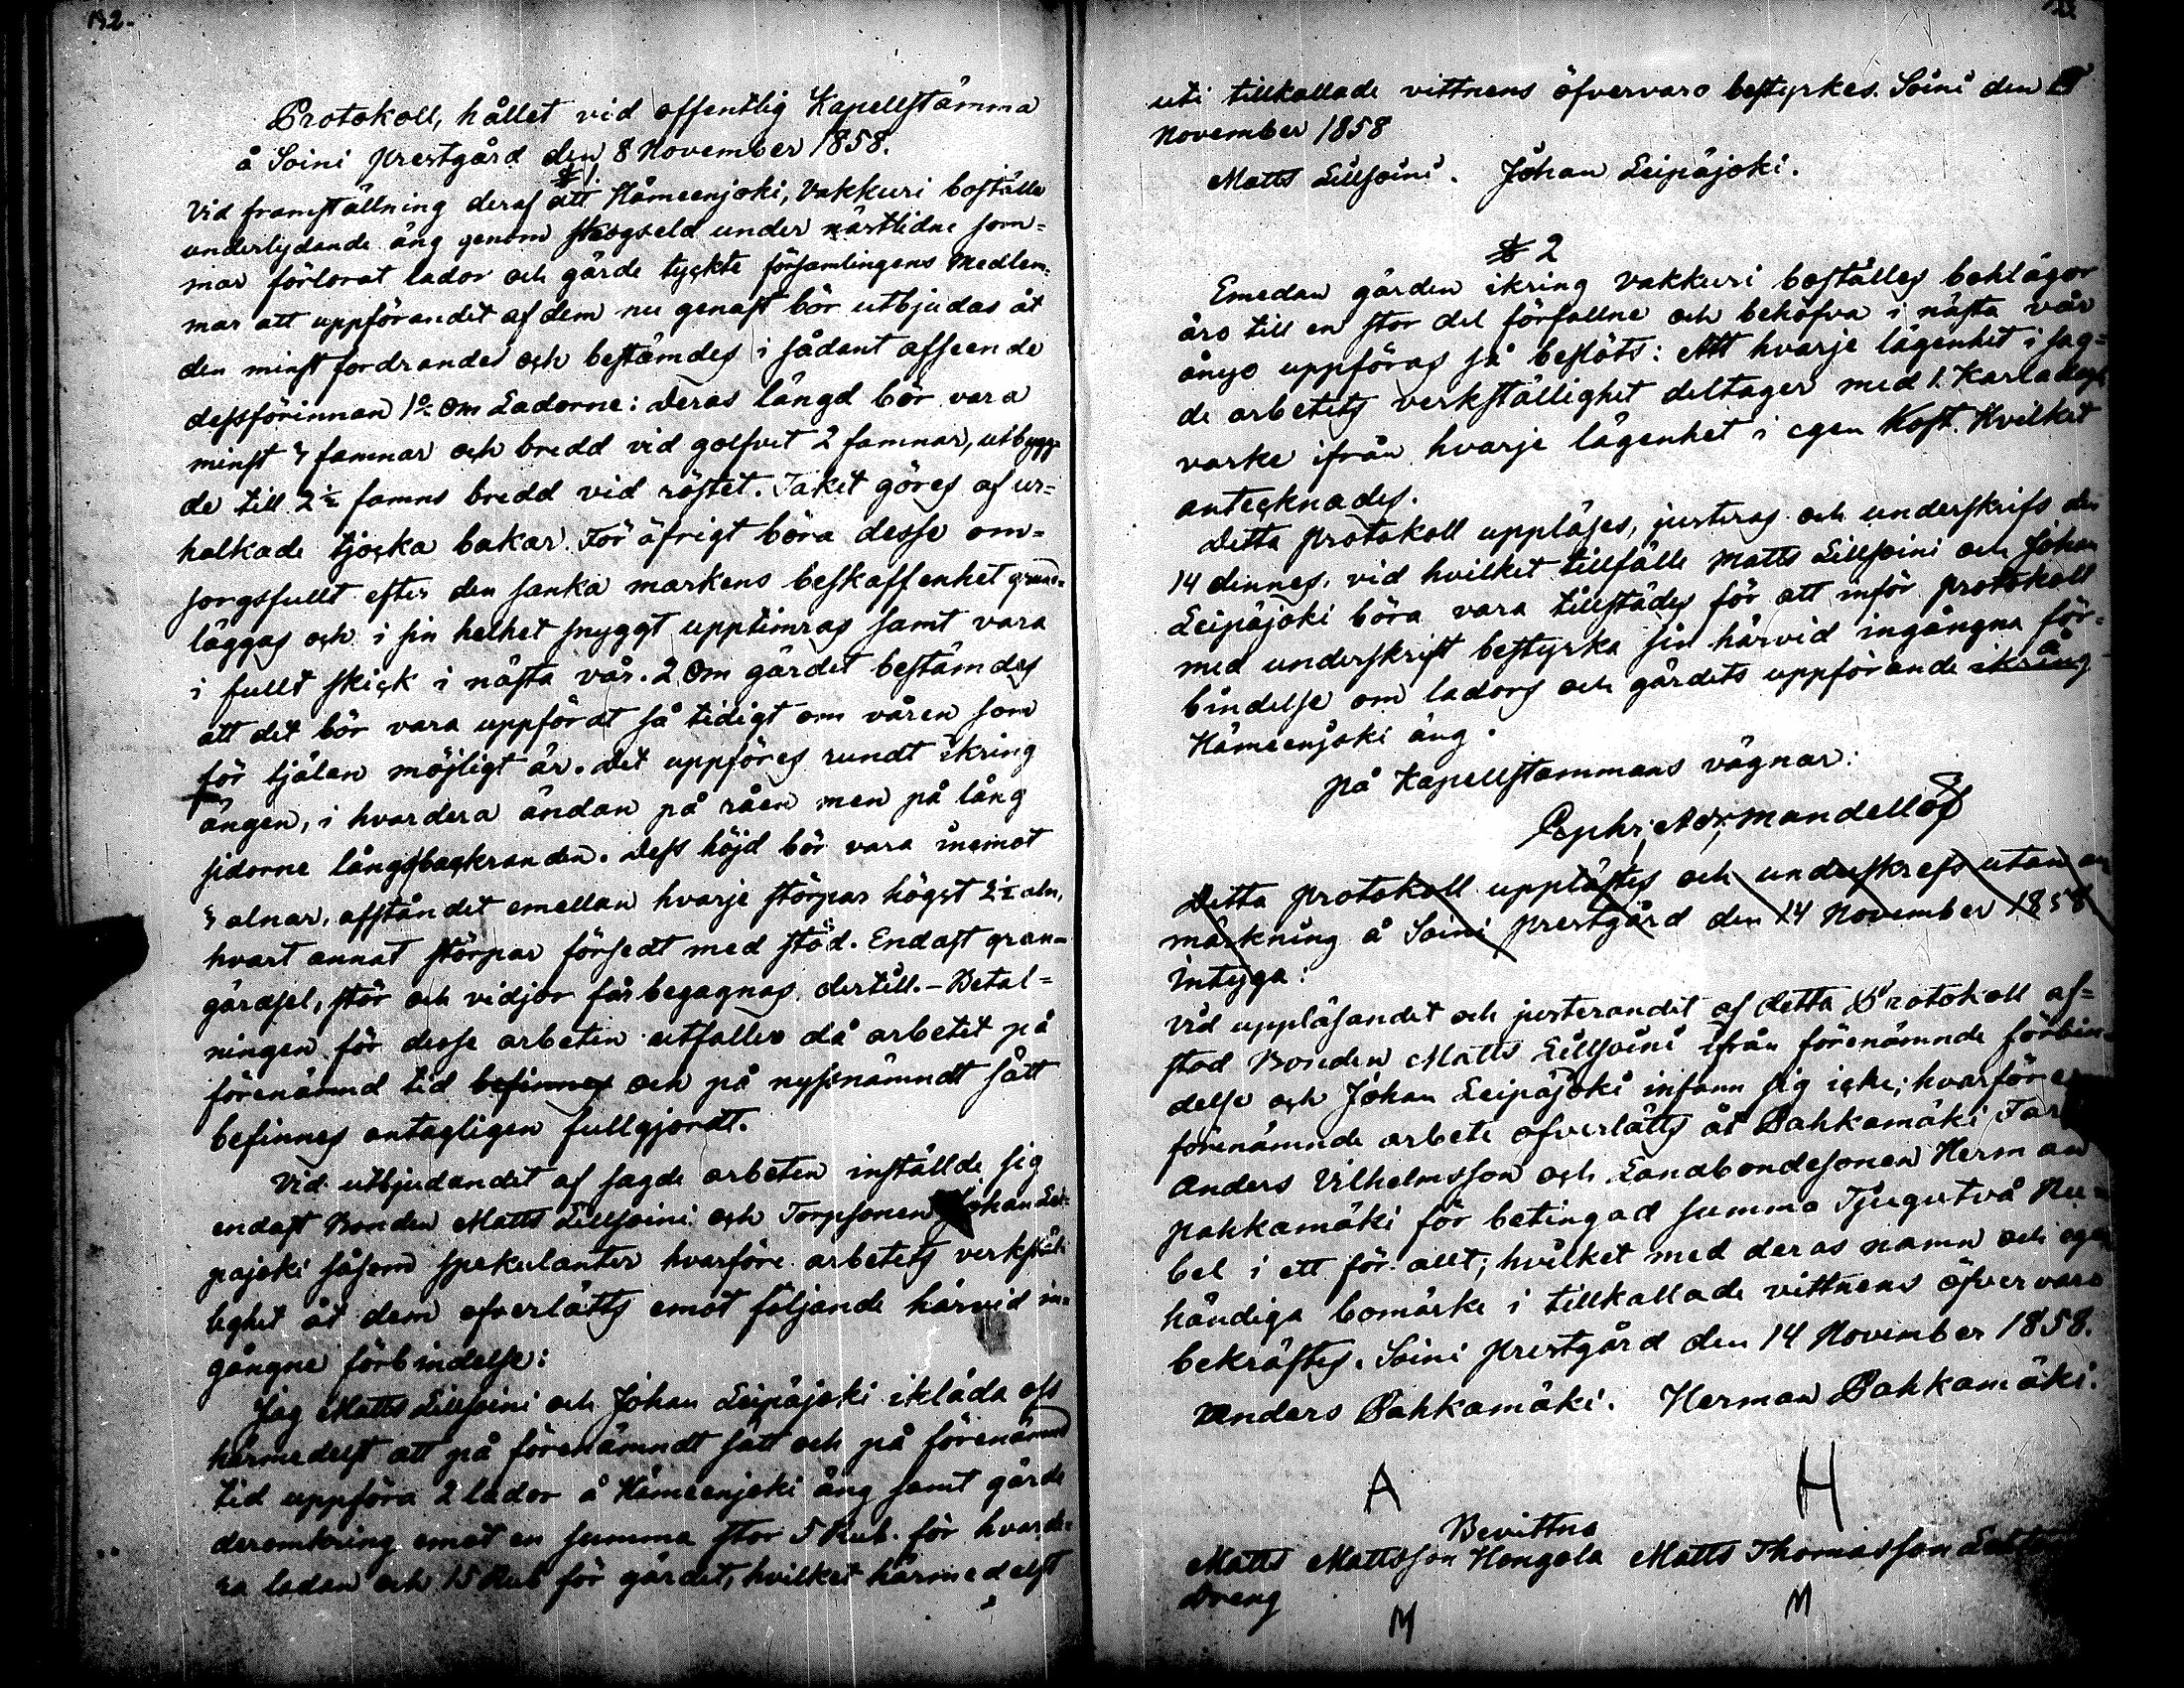 132.
Protokoll, hållet vid offentlig Kapellstämma
å Soini prestgård den 8 November 1858.
§ 1.
Vid framställning deraf att Hämeenjoki, Vakkuri boställe
underlydande äng genom skogseld under nästlidne som-
mar förlorat lador och gärde tyckte församlingens Medlem-
mar att uppförandet af dem nu genast bör utbjudas åt
den minst fordrande och bestämdes i sådant afseende
dessförinnan 1o om Ladorne: Deras längd bör vara
minst 3 famnar och bredd vid golfvet 2 famnar, utbygg-
de till 2½ famns bredd vid röstet. Taket göres af ur-
halkade tjocka bakar. För öfrigt böra desse om-
sorgsfullt efter den sanka markens beskaffenhet grund-
läggas och i sin helhet snyggt upptimras samt vara
i fullt skick i nästa vår. 2 Om gärdet bestämdes
att det bör vara uppfördt så tidigt om våren som
för tjälen möjligt är. Det uppföres rundt ikring
ängen, i hvardera ändan på råen men på lång
sidorne långs backranden. Dess höjd bör vara inemot
3 alnar, afståndet emellan hvarje störpar högst 2½ aln,
hvart annat störpar försedt med stöd. Endast gran-
gärdsel, stör och vidjor får begagnas dertill. - Betal-
ningen för desse arbeten utfaller då arbetet på
förenämnd tid befinnes och på nyssnämndt sätt
befinnes antagligen fullgjordt.
Vid utbjudandet af sagde arbeten inställde sig
endast Bonden Matts Lillsoini och Torpsonen Johan Lei-
pajoki såsom spekulanter hvarföre arbetets verkstäl-
lighet åt dem öfverlätts emot följande härvid in-
gångne förbindelse:
Jag Matts Lillsoini och Johan Leipäjoki ikläda oss
härmedelst att på förenämndt sätt och på förenämnd
tid uppföra 2 lador å Hämeenjoki äng samt gärde
deromkring emot en summa stor 5 Rub. för hvarde-
ra ladan och 15 Rub för gärdet, hvilket härmedelst
uti tillkallade vittnens öfvervaro bestyrkes. Soini den
November 1858
Matts Lillsoini. Johan Leipäjoki.
§ 2
Emedan gärden ikring Vakkuri boställes bohlägor
äro till en stor del förfallne och behöfva i nästa vår
ånyo uppföras så beslöts: Att hvarje lägenhet i sag-
de arbetets verkställighet deltager med 1. Karladags
varke ifrån hvarje lägenhet i egen Kost. Hvilket
antecknades.
Detta protokoll uppläses, justeras och underskrifs den
14 dennes, vid hvilket tillfälle Matts Lillsoini och Johan
Leipäjoki böra vara tillstädes för att inför protokoll
med underskrift bestyrka sin härvid ingångna för-
bindelse om ladors och gärdets uppförande ikring å
Hämeenjoki äng.
På Kapellstämmans vägnar:
Mandellöf
Detta protokoll upplästes och underskrefs utan an
märkning å Soini prestgård den 14 November 1858
intyga:
Vid uppläsandet och justerandet af detta Protokoll af-
stod Bonden Matts Lillsoini ifrån förenämnde förbin-
delse och Johan Leipäjoki infann sig icke; hvarföre
förenämnde arbete öfverlätts åt Pahkamäki
Anders Vilhelmsson och Landbondesonen Herman
Pahkamäki för betingad summa Tjugutvå Ru-
bel i ett för allt; hvilket med deras namn och egen
händiga bomärke i tillkallade vittnens öfvervaro
bekräftes. Soini prestgård den 14 November 1858.
Anders Pahkamäki. Herman Pahkamäki.
A H
Bevittna
Matts Mattsson Hongola Matts Thomasson
Dreng
M M